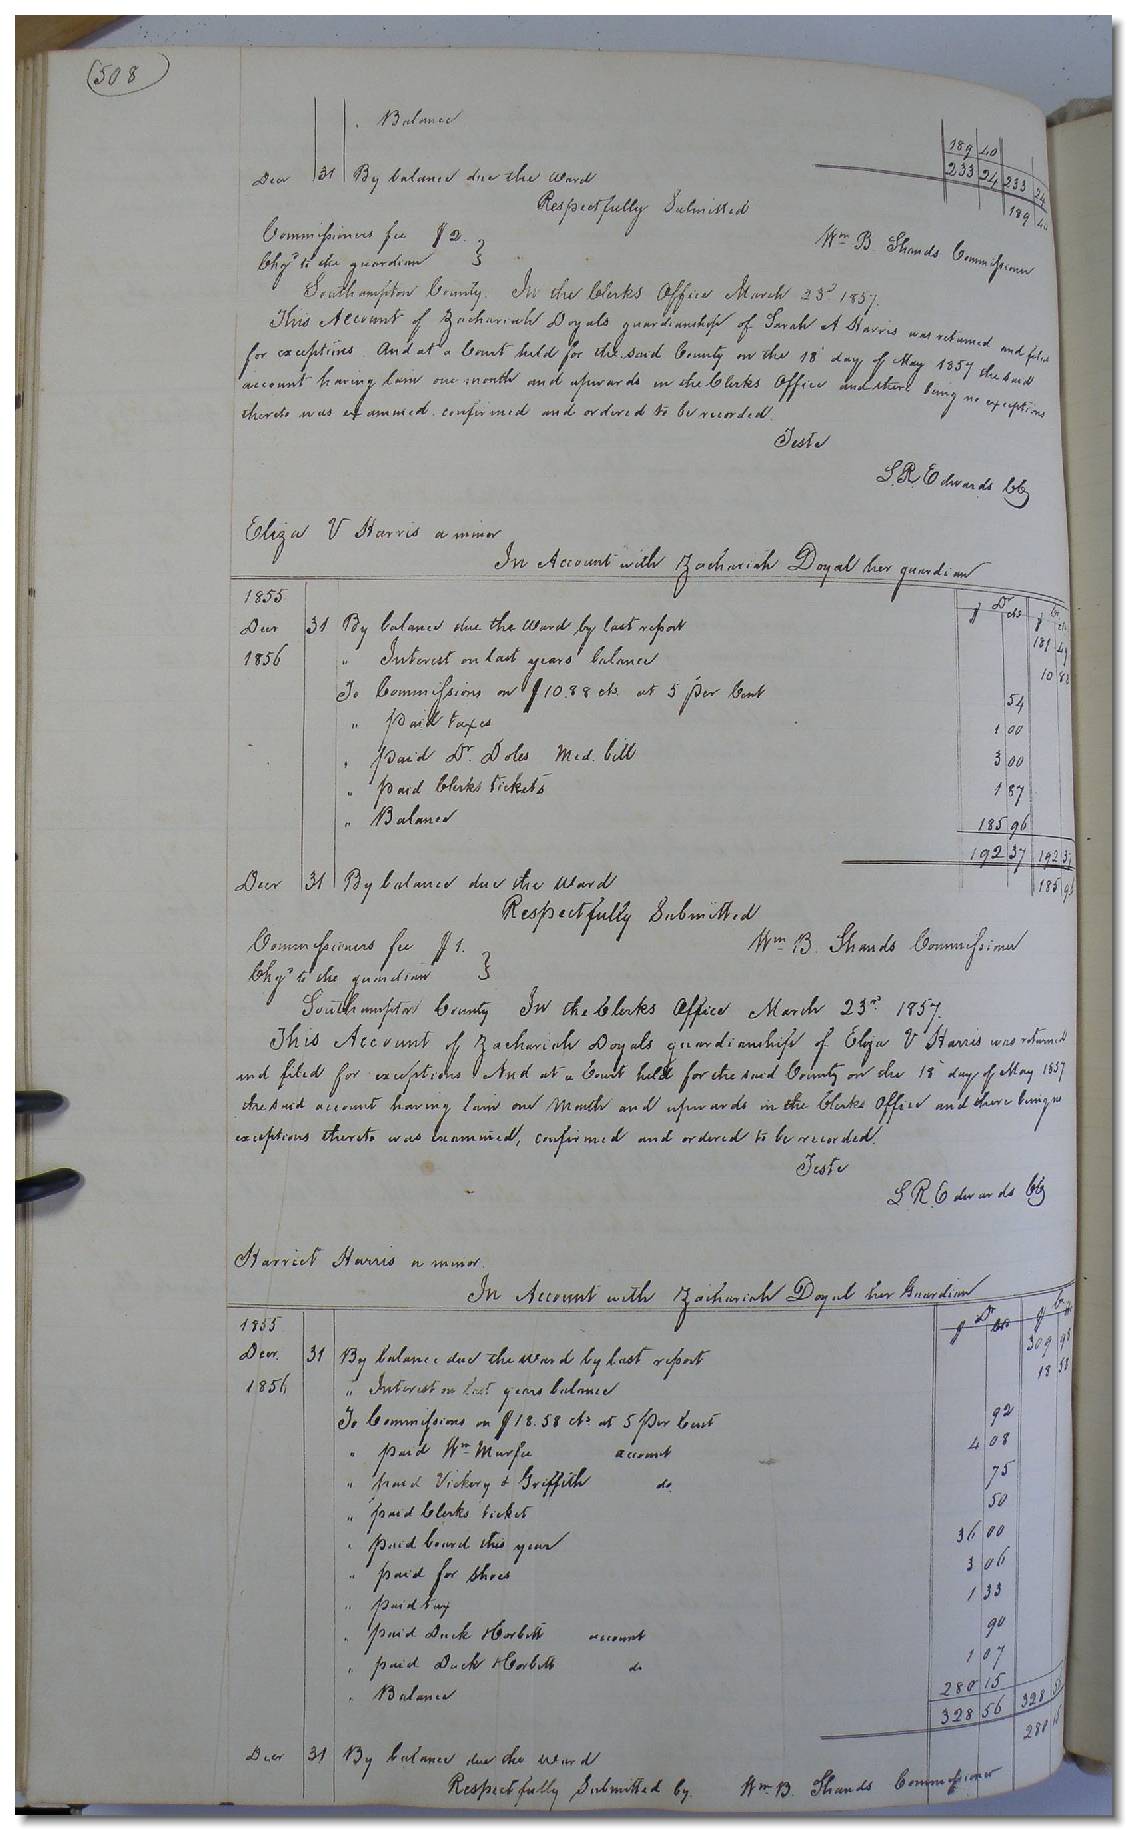 508
" Balance 189 40
233 24 233 24
Decr 31 By balance due the Ward 189 40
Respectfully Submitted
Commissioners fee $2. } Wm B Shands Commissioner
Chgd to the guardian }
Southampton County. In the Clerks Office March 23d 1857.
This Account of Zachariah Doyals guardianship of Sarah A Harris was returned and filed
for exceptions. And at a Court held for the said County on the 18 day of May 1857 the said
account having lain one month and upwards in the Clerks Office and there being no exceptions
thereto was examined confirmed and ordered to be recorded.
Teste
L.R. Edwards CC
Eliza V Harris a minor
In Account with Zachariah Doyal her guardian
1855 $ Dr cts $ Cr cts
Decr 31 By balance due the Ward by last report 181 49
1856 " Interest on last years balance 10 88
To Commissions on $10.88 cts. at 5 per Cent 54
" paid taxes 1 00
" paid Dr. Doles Med. bill 3 00
" paid Clerks tickets 1 87
" Balance 185 96
192 37 192 37
Decr 31 By balance due the Ward 185 96
Respectfully Submitted
Commissioners fee $1. } Wm B. Shands Commissioner
Chgd to the guardian }
Southampton County In the Clerks Office March 23rd 1857.
This Account of Zachariah Doyals guardianship of Eliza V Harris was returned
and filed for exceptions And at a Court held for the said County on the 18 day of May 1857
the said account having lain one Month and upwards in the Clerks Office and there being no
exceptions thereto was examined, confirmed and ordered to be recorded.
Teste
L R. Edwards CC
Harriet Harris a minor.
In Account with Zachariah Doyal her Guardian
1855 $ Dr cts $ Cr
Decr. 31 By balance due the Ward by last report 309 98
1856 " Interest on last years balance 18 58
To Commissions on $18.58 cts at 5 Per Cent 92
" paid Wm Murfee account 4 08
" paid Vickery & Griffith do. 75
" paid Clerks ticket 50
" paid board this year 36 00
" paid for Shoes 3 06
" paid tax 1 33
" paid Duck Corbett account 90
" paid Duck Corbett do 1 07
" Balance 280 15
328 56 328 56
Decr 31 By balance due the Ward 280 15
Respectfully Submitted by. Wm B. Shands Commissioner